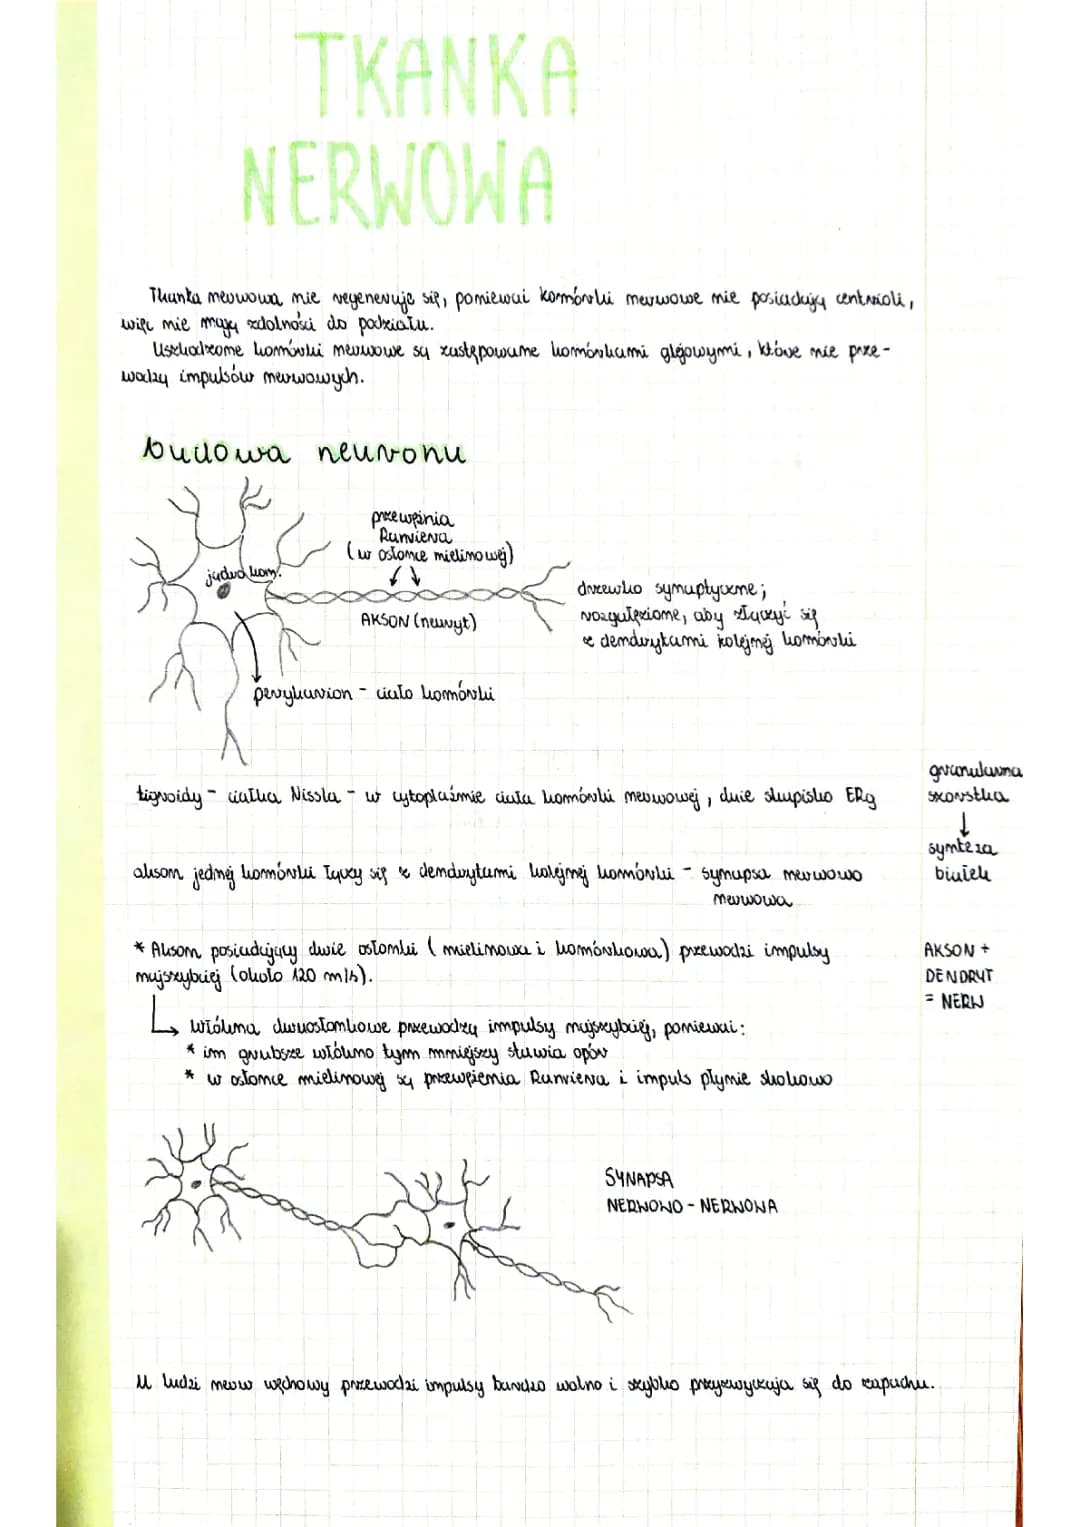 TKANKA
NERWOWA
Tkanka nerwowa nie regeneruje się, ponieważ komórki nerwowe nie posiadają centrioli,
więc nie mają zdolności do podziału.
Uszkodzone komórki nerwowe są zastępowane komórkami glejowymi, które nie prze-
wodzą impulsów nerwowych.
budowa neuronu
przewężnia
Ranviera
(w osłonce mielinowej)
jądro kom.
AKSON (neuryt)
drzewko synaptyczne;
rozgałęzione, aby złączyć się
z dendrytami kolejnej komórki
perykarion - ciało komórki
tigroidy - ciałka Nissla - w cytoplaźmie ciała komórki nerwowej, duże skupisko ERg
granularna
szorstka
↓
synteza
białek
akson jednej komórki łączy się z dendrytami kolejnej komórki - synapsa nerwowo
nerwowa
* Akson posiadający dwie osłonki (mielinowa i komórkowa) przewodzi impulsy
najszybciej (około 120 m/s).
AKSON +
DENDRYT
= NERW
włókna dwuosłonkowe przewodzą impulsy najszybciej, ponieważ:
* im grubsze włókno tym mniejszy stawia opór
* w osłonce mielinowej są przewężenia Ranviera i impuls płynie skokowo
SYNAPSA
NERWOWO - NERWOWA
U ludzi nerw węchowy przewodzi impulsy bardzo wolno i szybko przyzwyczaja się do zapachu.